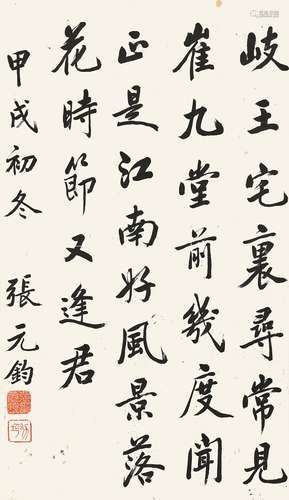 岐王宅裏尋常見
崔九堂前幾度聞
正是江南好風景落
花時節又逢君
甲戌初冬 張元鈞